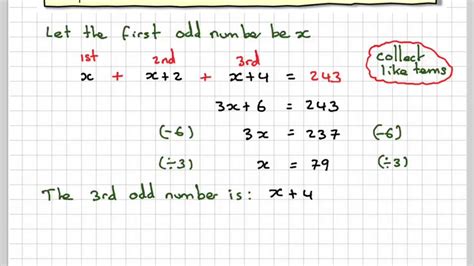 Let the first odd number be x
1st 2nd 3rd
x + x+2 + x+4 = 243
collect
like tems
3x+6 = 243
(-6) 3x = 237 (-6)
(÷3) x = 79 (÷3)
The 3rd odd number is: x+4